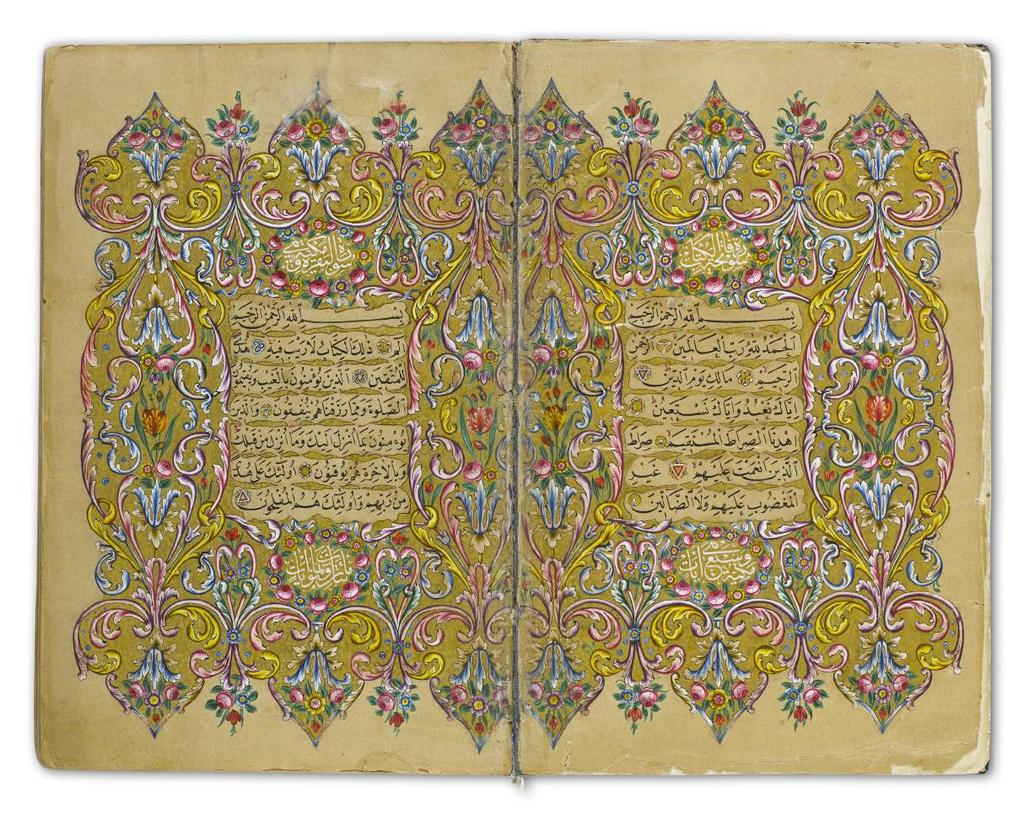 سورة فاتحة الكتاب
بسم الله الرحمن الرحيم
الحمد لله رب العالمين الرحمن
الرحيم مالك يوم الدين
اياك نعبد واياك نستعين
اهدنا الصراط المستقيم صراط
الذين انعمت عليهم غير
المغضوب عليهم ولا الضالين
سبع آيات
سورة البقرة
بسم الله الرحمن الرحيم
الم ذلك الكتاب لا ريب فيه هدى
للمتقين الذين يؤمنون بالغيب ويقيمون
الصلوة ومما رزقناهم ينفقون والذين
يؤمنون بما انزل اليك وما انزل من قبلك
وبالاخرة هم يوقنون اولئك على هدى
من ربهم واولئك هم المفلحون